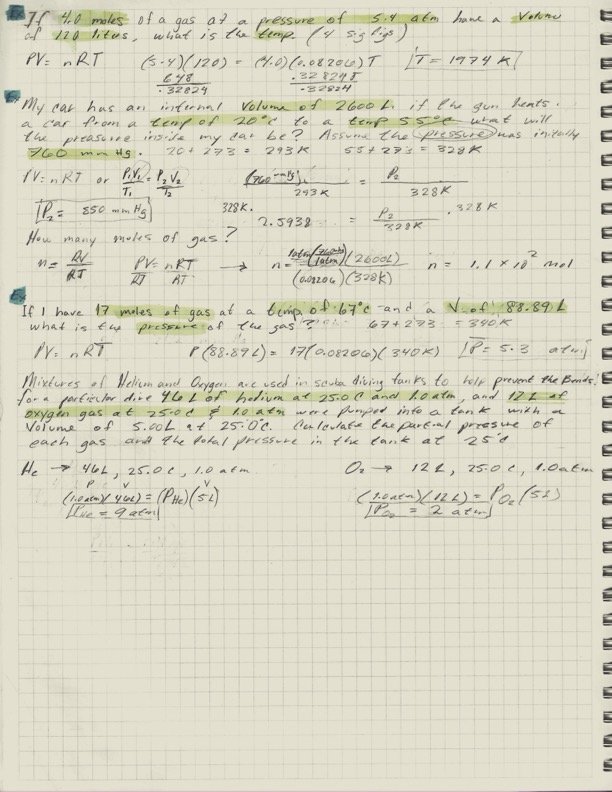 Ex
If 4.0 moles of a gas at a pressure of 5.4 atm have a volume
of 120 liters, what is the temp. (4 sig figs)
PV = nRT (5.4)(120) = (4.0)(0.08206)T [T = 1974 K]
648 / .32824 .32824T / .32824
Ex
My car has an internal volume of 2600 L. if the sun heats
a car from a temp of 20°C to a temp 55°C what will
the pressure inside my car be? Assume the pressure was initially
760 mm Hg. 20 + 273 = 293K 55 + 273 = 328K
PV = nRT or P₁V₁/T₁ = P₂V₂/T₂ (760 mmHg)/293K = P₂/328K
[P₂ = 850 mm Hg] 328K. 2.5938 = P₂/328K . 328K
How many moles of gas?
n = PV/RT PV/RT = nRT/RT → n = (2600L)/(0.08206)(328K) n = 1.1 × 10² mol
Ex
If I have 17 moles of gas at a temp of 67°C and a V. of 88.89 L
what is the pressure of the gas? 67 + 273 = 340K
PV = nRT P(88.89L) = 17(0.08206)(340K) [P = 5.3 atm]
Mixtures of Helium and Oxygen are used in scuba diving tanks to help prevent the Bends.
for a particular dive 46 L of helium at 25.0C and 1.0 atm, and 12 L of
oxygen gas at 25.0C & 1.0 atm were pumped into a tank with a
volume of 5.00L at 25.0°C. Calculate the partial pressure of
each gas and the total pressure in the tank at 25°C
He → 46L, 25.0C, 1.0 atm O₂ → 12 L, 25.0C, 1.0 atm
P V V
(1.0 atm)(46L) = (PHe)(5L) (1.0 atm)(12L) = PO₂(5L)
[PHe = 9 atm] [PO₂ = 2 atm]